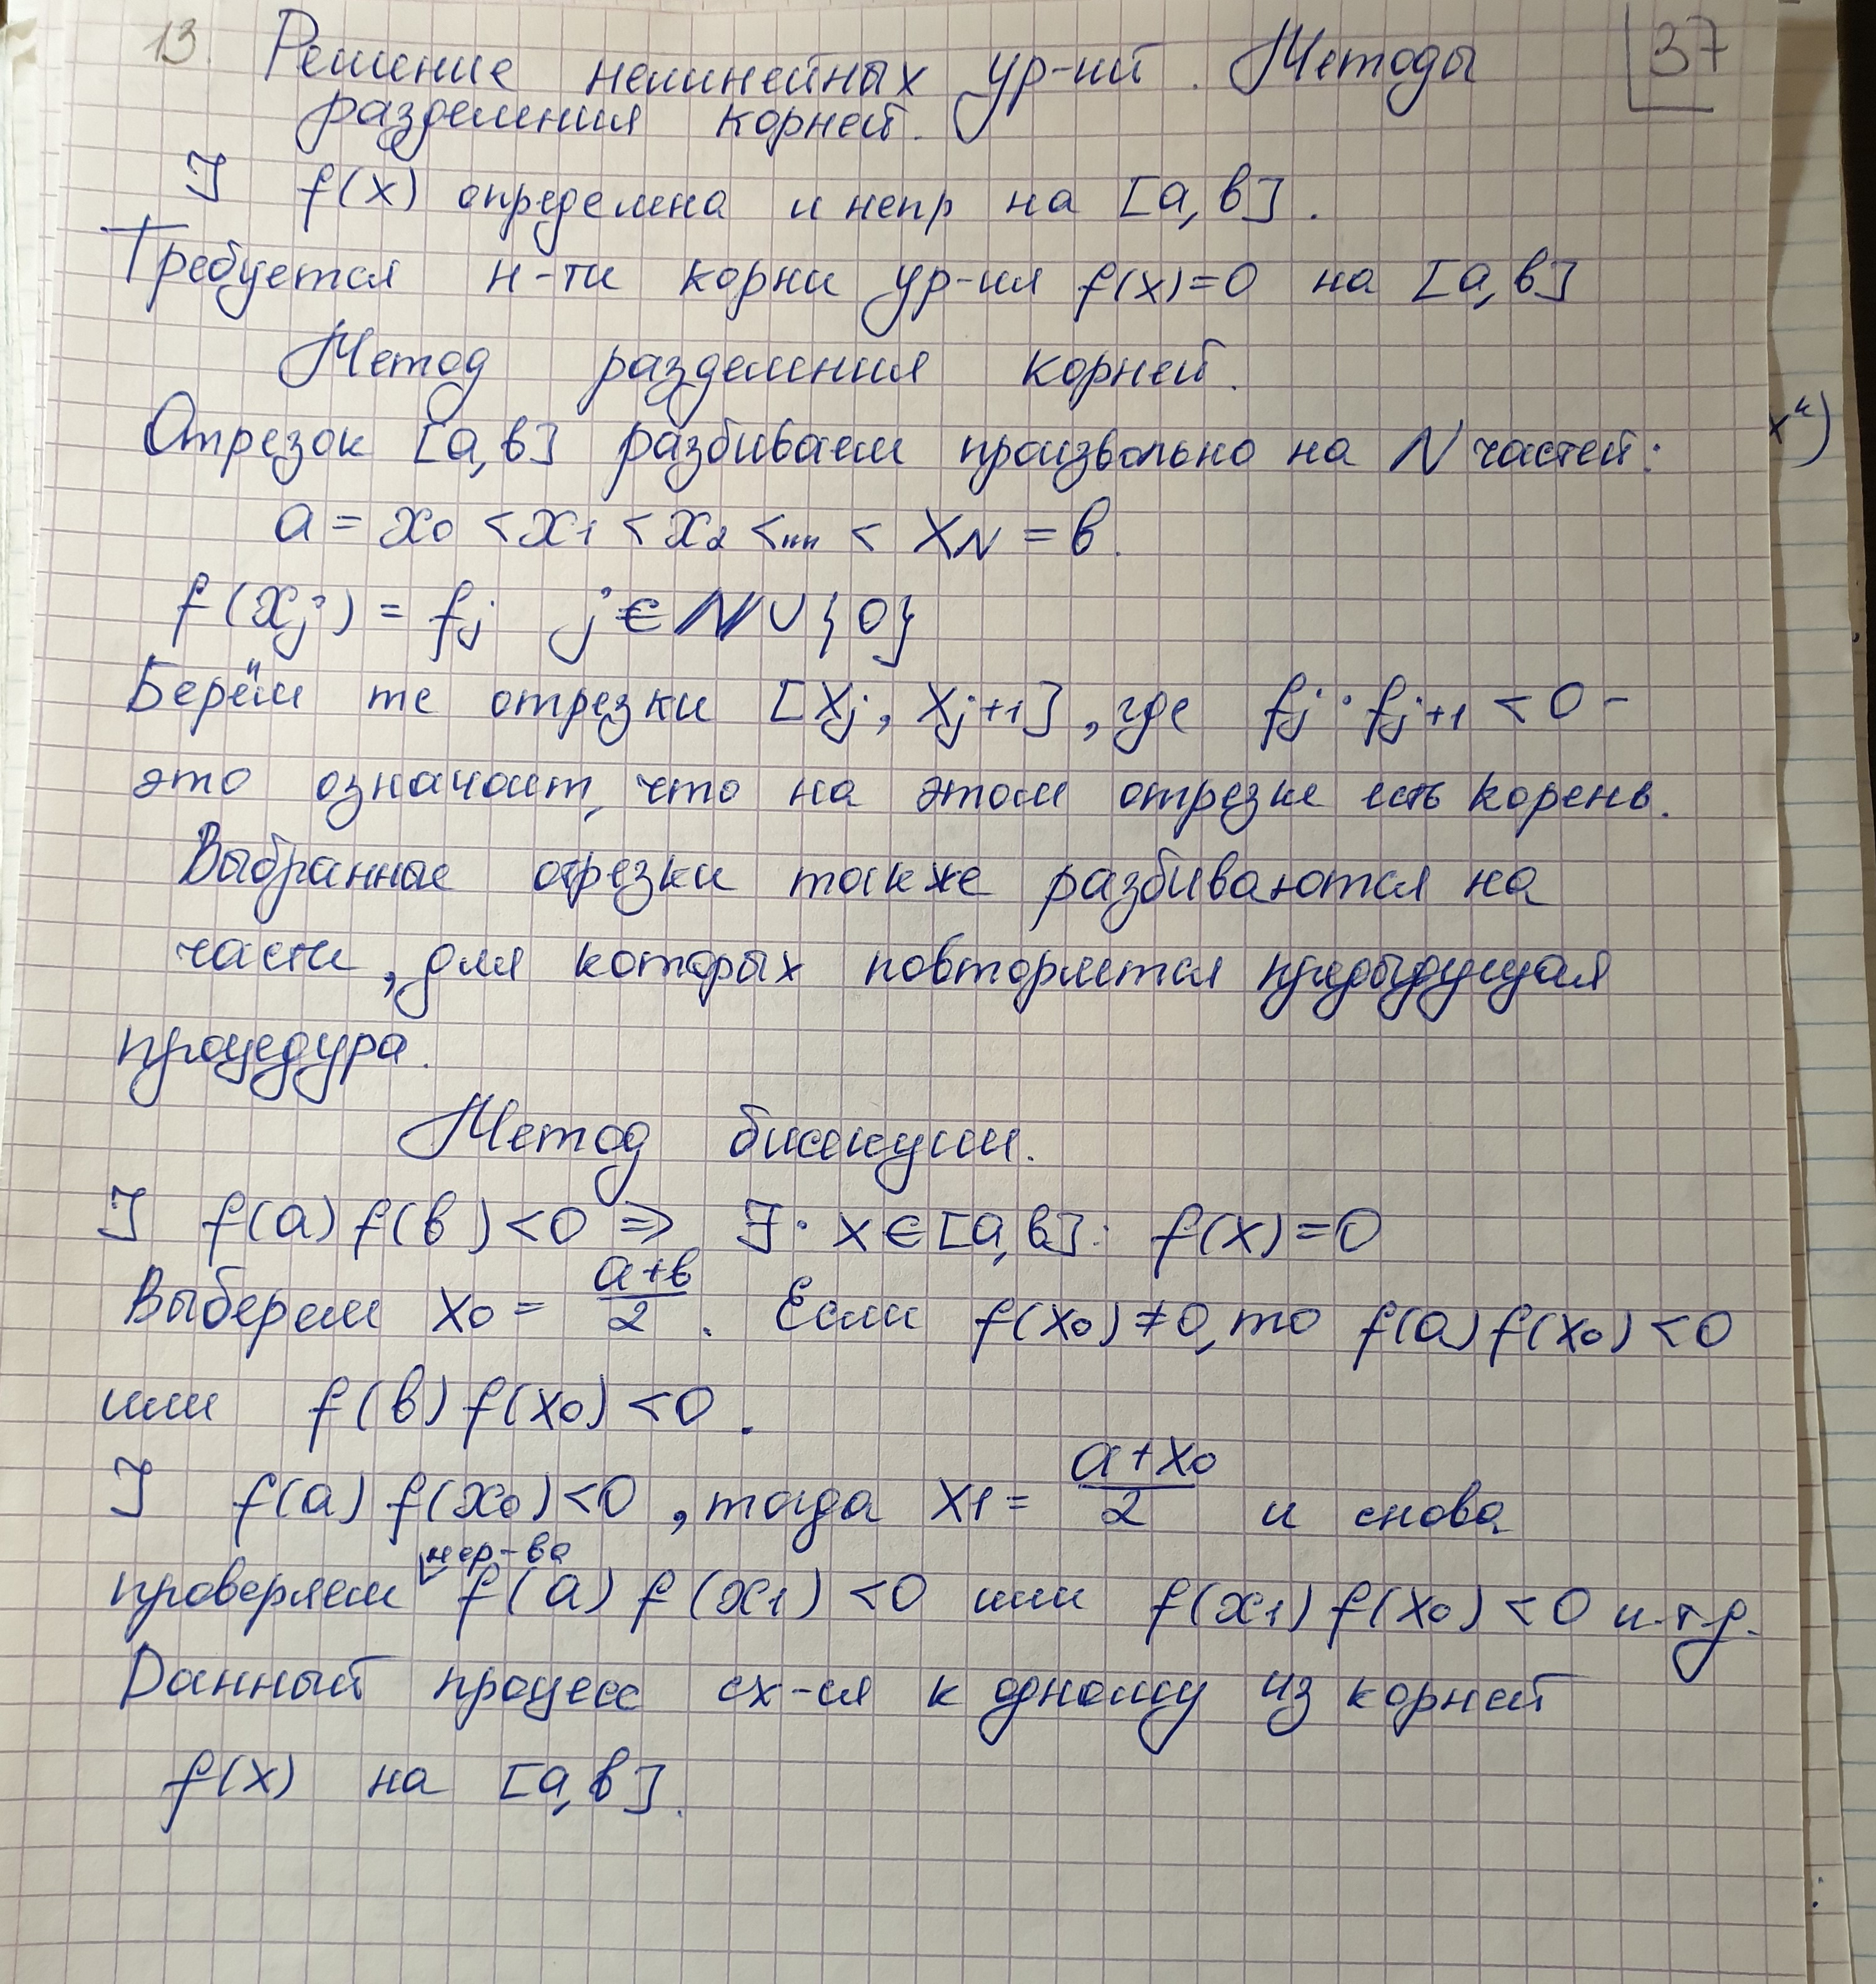 13. Решение нелинейных ур-ий. Методы
37
разделения корней.
] f(x) определена и непр на [a, в].
Требуется н-ти корни ур-ия f(x)=0 на [a, в]
Метод разделения корней.
Отрезок [a, в] разбиваем произвольно на N частей:
x^k)
a = x₀ < x₁ < x₂ <... < x_N = в.
f(x_j) = f_j j ∈ N ∪ {0}
Берём те отрезки [x_j, x_{j+1}], где f_j · f_{j+1} < 0 -
это означает, что на этом отрезке есть корень.
Выбранные отрезки также разбиваются на
части, для которых повторяется предыдущая
процедура.
Метод бисекции.
] f(a) f(в) < 0 ⇒ ∃ x ∈ [a, в]: f(x) = 0
Выберем x₀ = (a+в)/2. Если f(x₀) ≠ 0, то f(a) f(x₀) < 0
или f(в) f(x₀) < 0.
] f(a) f(x₀) < 0, тогда x₁ = (a+x₀)/2 и снова
проверяем нер-ва f(a) f(x₁) < 0 или f(x₁) f(x₀) < 0 и.т.д.
Данный процесс сх-ся к одному из корней
f(x) на [a, в].